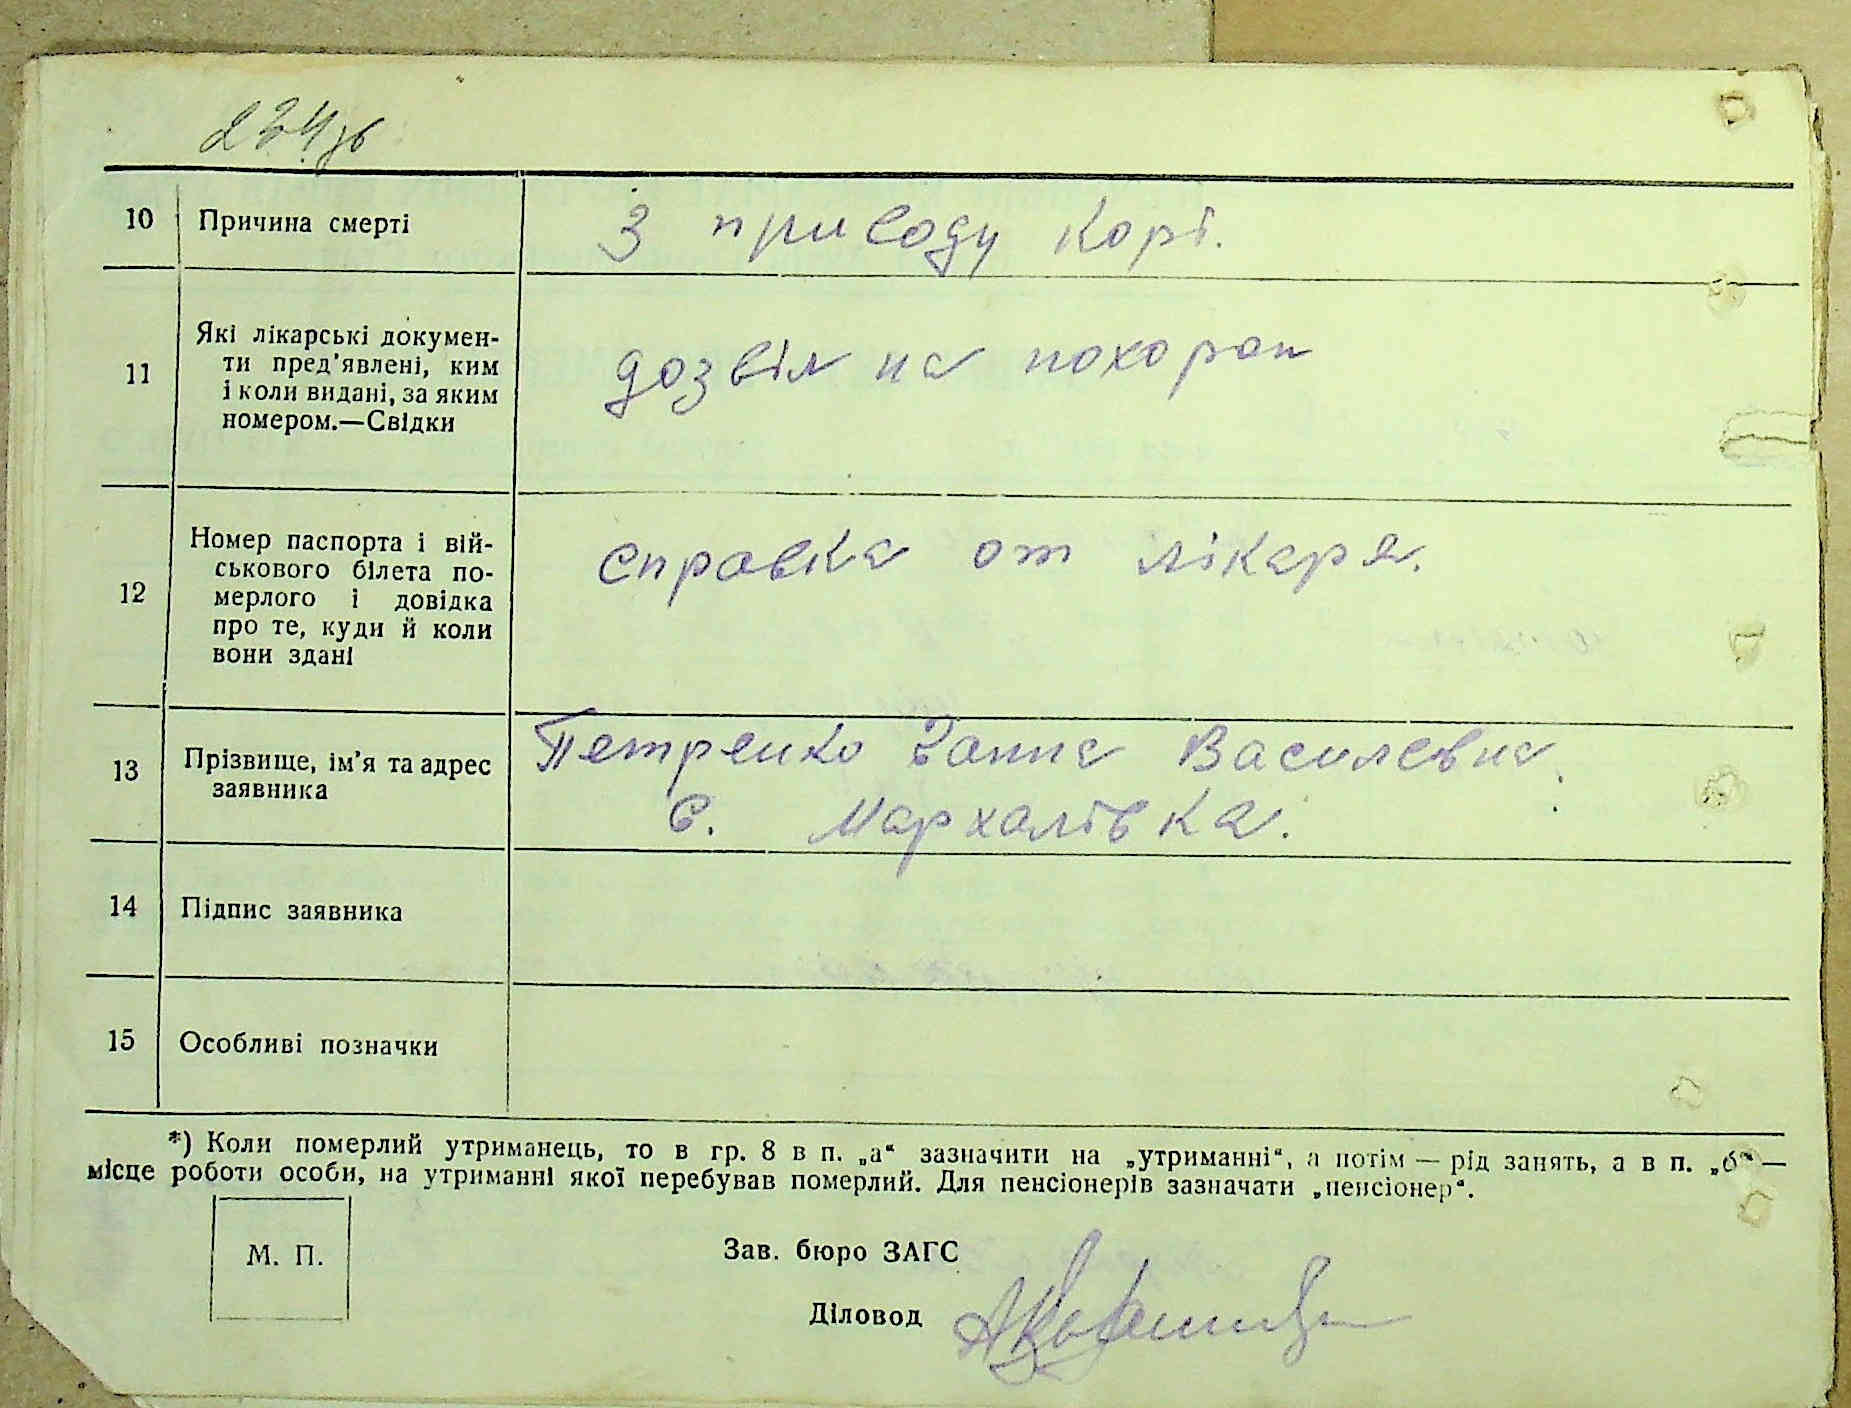 234зв
10 Причина смерті З приводу корі.
11 Які лікарські докумен-
ти пред'явлені, ким
і коли видані, за яким
номером.—Свідки
дозвіл на похорон
12 Номер паспорта і вій-
ськового білета по-
мерлого і довідка
про те, куди й коли
вони здані
справка от лікаря.
13 Прізвище, ім'я та адрес
заявника
Петренко Ганна Василевна.
с. Мархалівка.
14 Підпис заявника
15 Особливі позначки
*) Коли померлий утриманець, то в гр. 8 в п. „а“ зазначити на „утриманні“, а потім — рід занять, а в п. „б“ —
місце роботи особи, на утриманні якої перебував померлий. Для пенсіонерів зазначати „пенсіонер“.
М. П.
Зав. бюро ЗАГС
Діловод